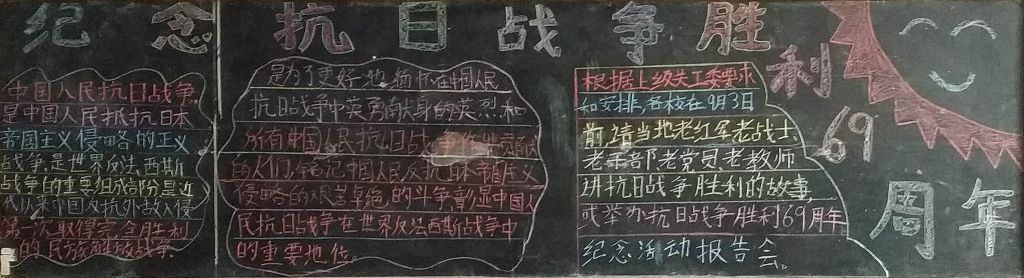 纪念抗日战争胜利69周年
中国人民抗日战争
是中国人民抵抗日本
帝国主义侵略的正义
战争,是世界反法西斯
战争的重要组成部分,是近
代以来中国反抗外敌入侵
第一次取得完全胜利
的民族解放战争
是为了更好地缅怀在中国人民
抗日战争中英勇献身的英烈和
所有中国人民抗日战争作出贡献
的人们,铭记中国人民反抗日本帝国主义
侵略的艰苦卓绝的斗争,彰显中国人
民抗日战争在世界反法西斯战争中
的重要地位。
根据上级关工委要求
和安排,各校在9月3日
前请当地老红军老战士
老干部老党员老教师
讲抗日战争胜利的故事
或举办抗日战争胜利69周年
纪念活动报告会。